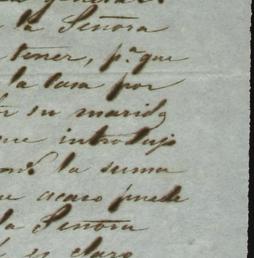 la Señora
tener, p.ª que
la casa por
su marido
que introdujo
la suma
acaso puede
la Señora
claro